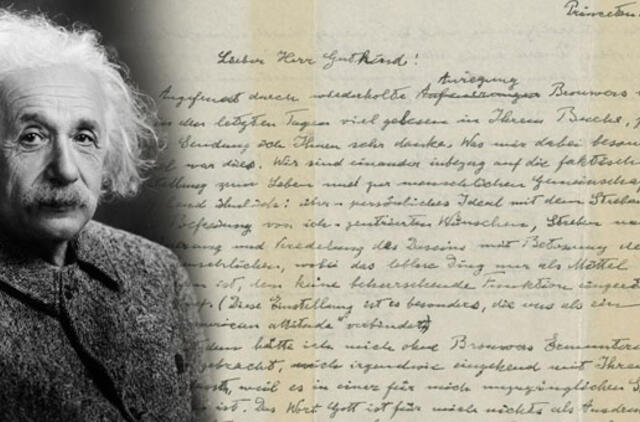 Princeton.
Lieber Herr Gutkind!
Anregung
Angefeuert durch wiederholte Brouwers
in den letzten Tagen viel gelesen in Ihrem Buche,
Sendung ich Ihnen sehr danke. Was mir dabei beson
war dies. Wir sind einander inbezug auf die faktische
zum Leben und zur menschlichen Gemeinschaft
ähnlich: über-persönliches Ideal mit dem Streben
Befreiung von ich-zentrierten Wünschen, Streben nach
und Veredelung des Daseins mit Betonung des
schlichen, wobei das leblose Ding nur als Mittel
ist, dem keine beherrschende Funktion eingeräumt
(Diese Einstellung ist es besonders, die uns als ein
american attitude" verbindet)
dem hätte ich mich ohne Brouwers Ermunterung
gebracht, mich irgendwie eingehend mit Ihrem
weil es in einer für mich unzugänglichen
ist. Das Wort Gott ist für mich nichts als Ausdruck